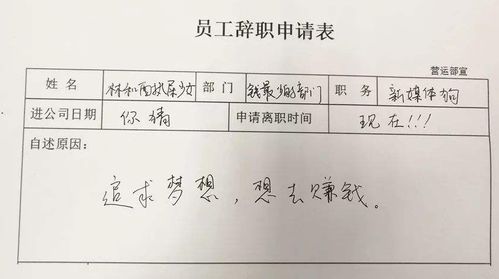 员工辞职申请表
营运部宣
姓 名 部 门 钱最少的部门 职 务 新媒体狗
进公司日期 你猜 申请离职时间 现在!!!
自述原因:
追求梦想,想去赚钱。